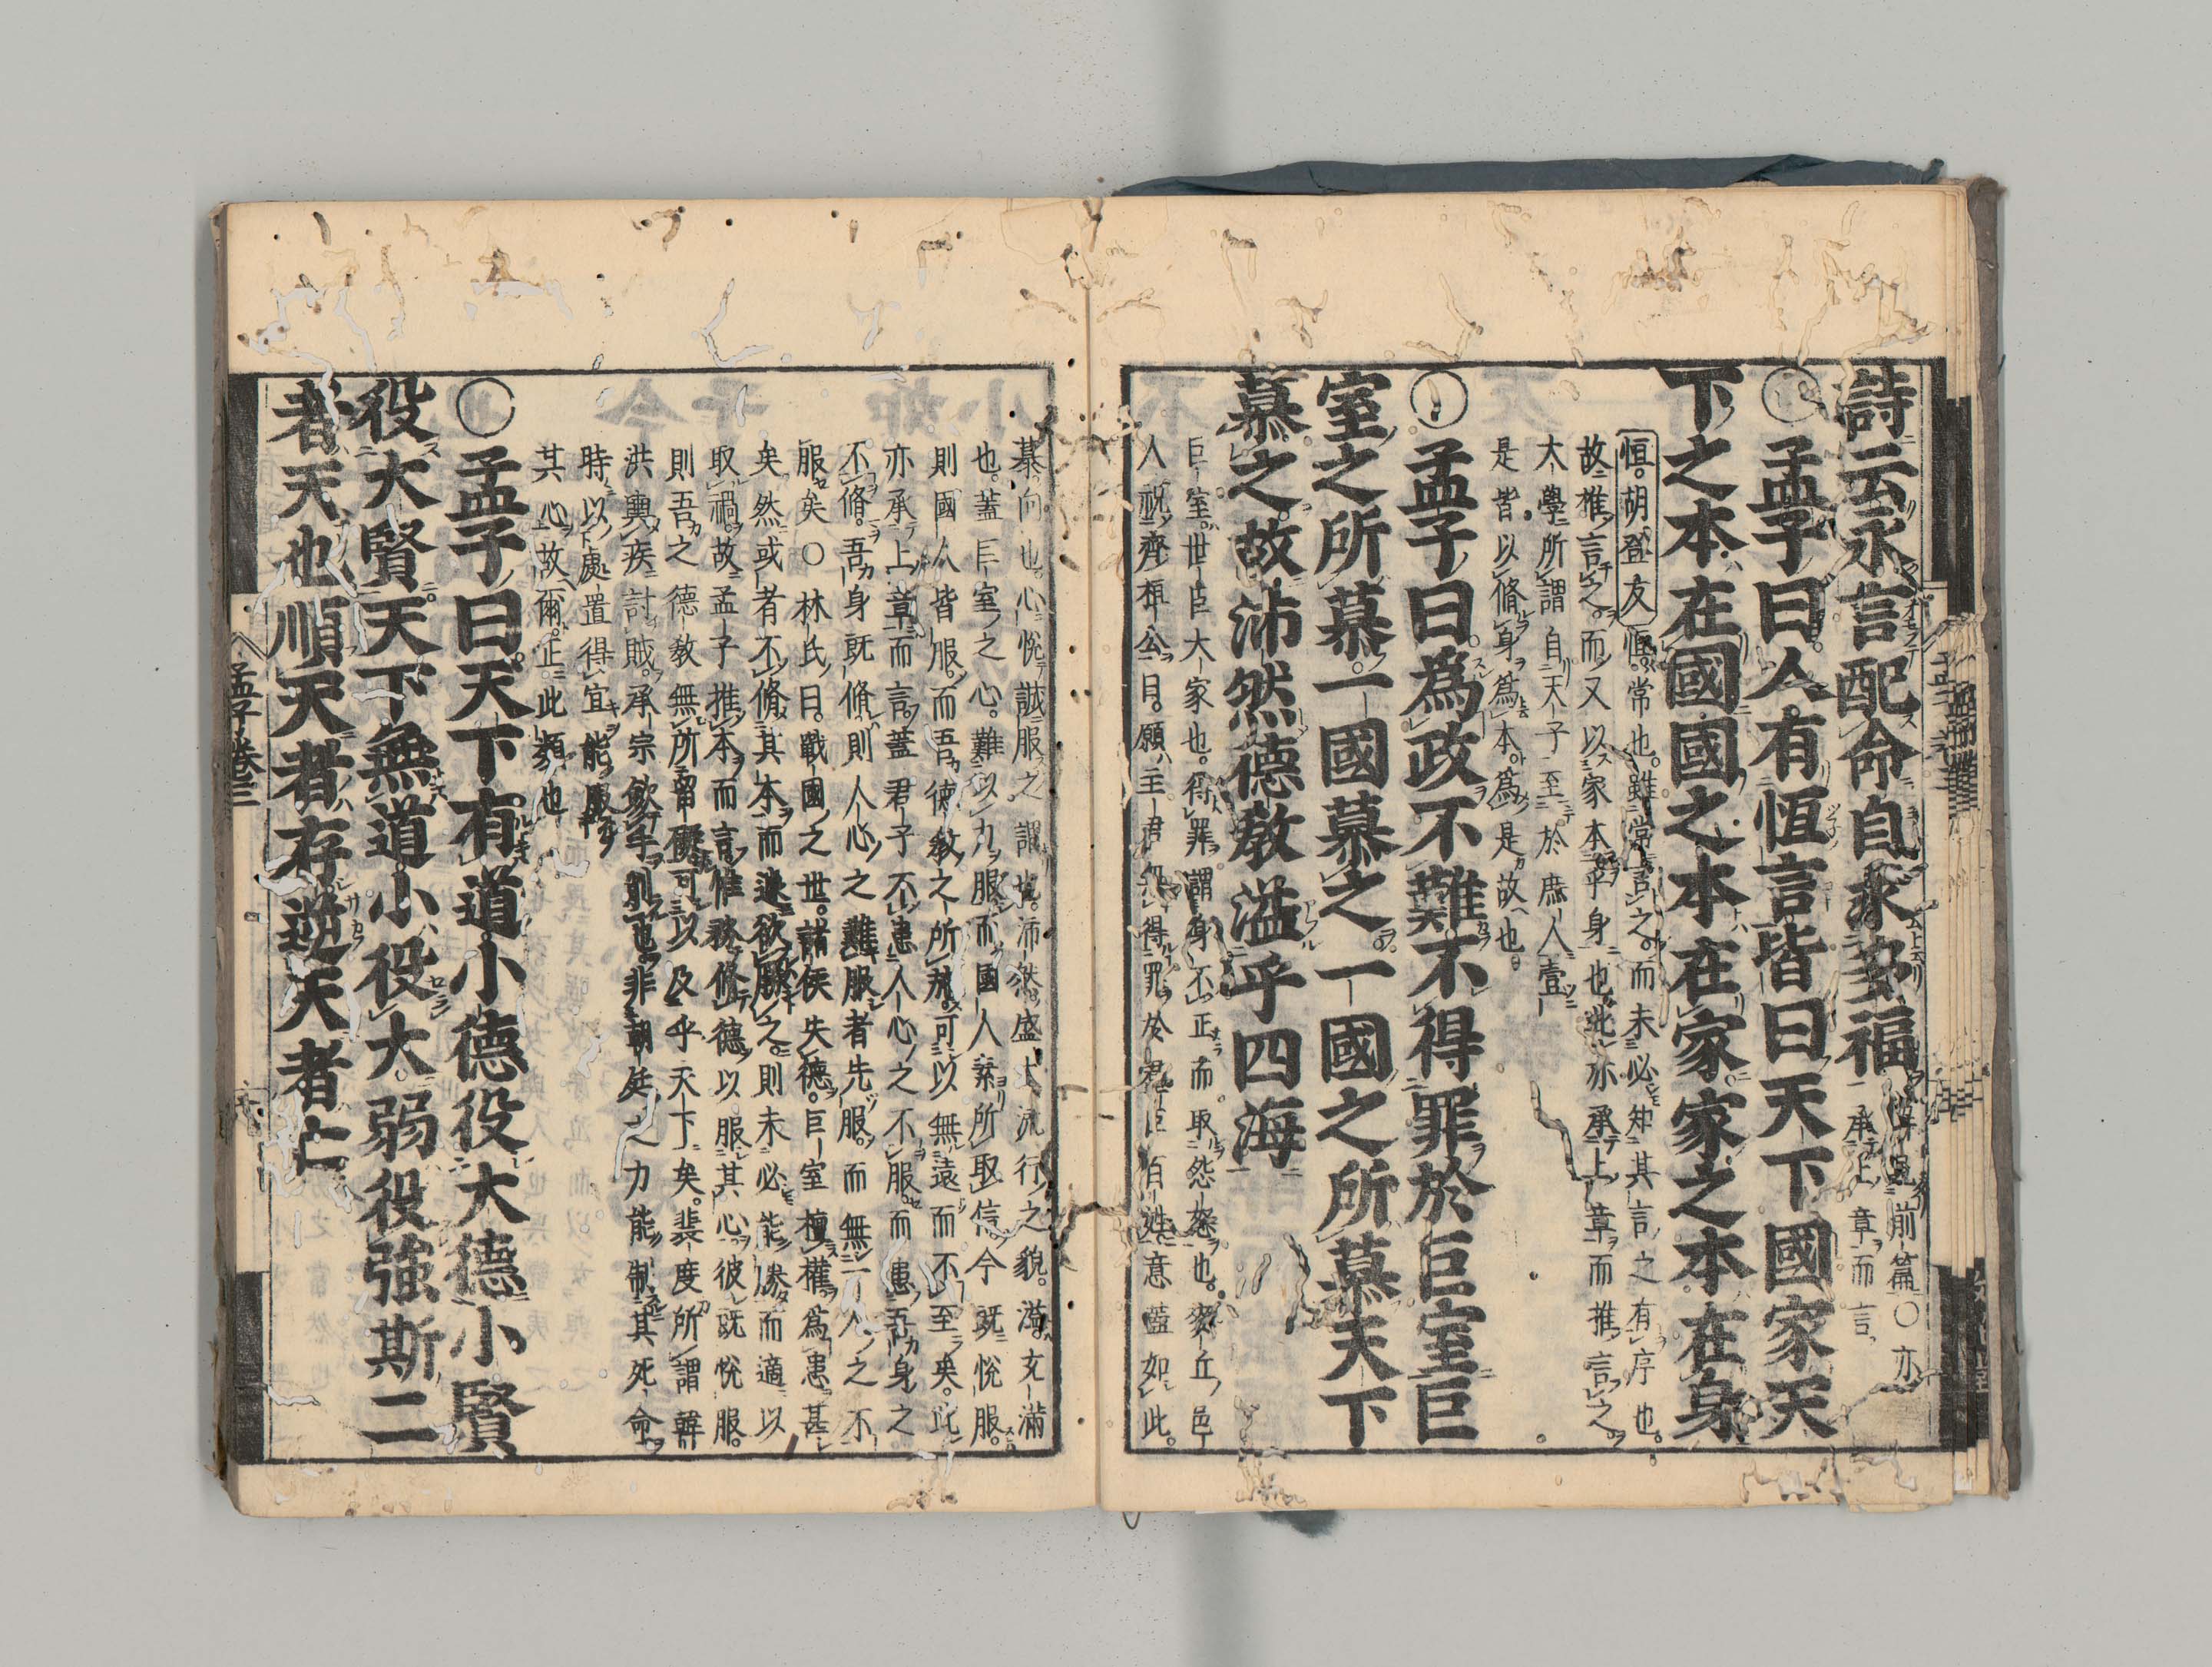 詩云永言配命自求多福
解見前篇○亦
承上章而言
○孟子曰人有恆言皆曰天下國家天
下之本在國國之本在家家之本在身
恒胡登友恒常也雖常言之而未必知其言之有序也
故推言之而又以家本乎身也此亦承上章而推言之
大學所謂自天子至於庶人壹
是皆以脩身為本為是故也
○孟子曰為政不難不得罪於巨室巨
室之所慕一國慕之一國之所慕天下
慕之故沛然德教溢乎四海
巨室世臣大家也得罪謂身不正而取怨怒也麥丘邑
人祝齊桓公曰願主君無得罪於群臣百姓意蓋如此
慕向也心悅誠服之謂也沛然盛大流行之貌溢充滿
也蓋巨室之心難以力服而國人素所取信今既悅服
則國人皆服而吾德教之所施可以無遠而不至矣此
亦承上章而言蓋君子不患人心之不服而患吾身之
不脩吾身既脩則人心之難服者先服而無一人之不
服矣○林氏曰戰國之世諸侯失德巨室擅權為患甚
矣然或者不脩其本而遽欲勝之則未必能勝而適以
取禍故孟子推本而言惟務脩德以服其心彼既悅服
則吾之德教無所留礙可以及乎天下矣裴度所謂韓
洪輿疾討賊承宗斂手削地非朝廷之力能制其死命
時以處置得宜能服
其心故爾正此類也
○孟子曰天下有道小德役大德小賢
役大賢天下無道小役大弱役強斯二
者天也順天者存逆天者亡
孟子卷三